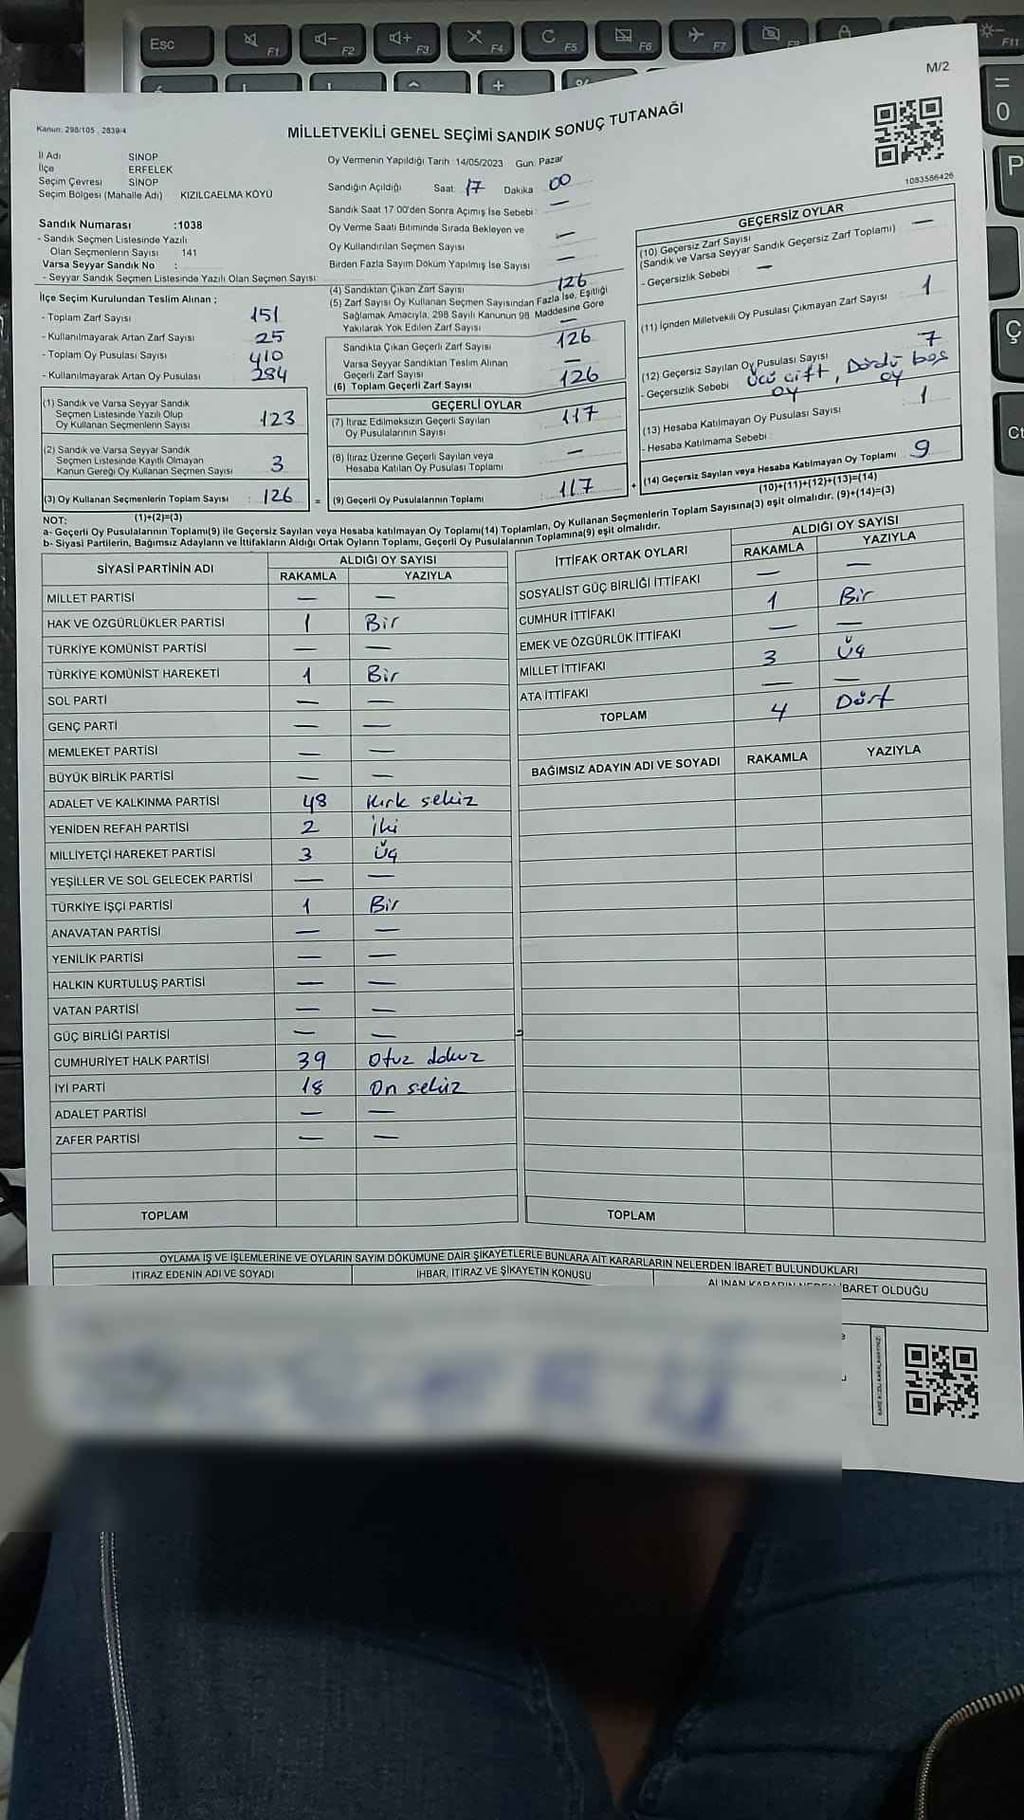 Esc F1 F2 F3 F4 F5 F6 F7 F11
M/2
Kanun: 298/105 , 2839/4
MİLLETVEKİLİ GENEL SEÇİMİ SANDIK SONUÇ TUTANAĞI
1083586426
İl Adı SİNOP
İlçe ERFELEK
Seçim Çevresi SİNOP
Seçim Bölgesi (Mahalle Adı) KIZILCAELMA KÖYÜ
Oy Vermenin Yapıldığı Tarih 14/05/2023 Gün: Pazar
Sandığın Açıldığı Saat: 17 Dakika 00
Sandık Saat 17 00'den Sonra Açımış İse Sebebi : —
Oy Verme Saati Bitiminde Sırada Bekleyen ve
Oy Kullandırılan Seçmen Sayısı —
Birden Fazla Sayım Döküm Yapılmış İse Sayısı —
Sandık Numarası :1038
- Sandık Seçmen Listesinde Yazılı
Olan Seçmenlerin Sayısı : 141
Varsa Seyyar Sandık No :
- Seyyar Sandık Seçmen Listesinde Yazılı Olan Seçmen Sayısı:
İlçe Seçim Kurulundan Teslim Alınan ;
- Toplam Zarf Sayısı 151
- Kullanılmayarak Artan Zarf Sayısı 25
- Toplam Oy Pusulası Sayısı 410
- Kullanılmayarak Artan Oy Pusulası 284
(1) Sandık ve Varsa Seyyar Sandık
Seçmen Listesinde Yazılı Olup
Oy Kullanan Seçmenlerin Sayısı : 123
(2) Sandık ve Varsa Seyyar Sandık
Seçmen Listesinde Kayıtlı Olmayan
Kanun Gereği Oy Kullanan Seçmen Sayısı : 3
(3) Oy Kullanan Seçmenlerin Toplam Sayısı : 126
(1)+(2)=(3)
(4) Sandıktan Çıkan Zarf Sayısı 126
(5) Zarf Sayısı Oy Kullanan Seçmen Sayısından Fazla İse, Eşitliği
Sağlamak Amacıyla, 298 Sayılı Kanunun 98. Maddesine Göre
Yakılarak Yok Edilen Zarf Sayısı —
Sandıkta Çıkan Geçerli Zarf Sayısı 126
Varsa Seyyar Sandıktan Teslim Alınan
Geçerli Zarf Sayısı —
(6) Toplam Geçerli Zarf Sayısı 126
GEÇERLİ OYLAR
(7) İtiraz Edilmeksizin Geçerli Sayılan
Oy Pusulalarının Sayısı : 117
(8) İtiraz Üzerine Geçerli Sayılan veya
Hesaba Katılan Oy Pusulası Toplamı —
= (9) Geçerli Oy Pusulalarının Toplamı : 117
GEÇERSİZ OYLAR
(10) Geçersiz Zarf Sayısı
(Sandık ve Varsa Seyyar Sandık Geçersiz Zarf Toplamı) —
- Geçersizlik Sebebi —
(11) İçinden Milletvekili Oy Pusulası Çıkmayan Zarf Sayısı 1
(12) Geçersiz Sayılan Oy Pusulası Sayısı 7
- Geçersizlik Sebebi Üçü çift oy, Dördü boş oy
(13) Hesaba Katılmayan Oy Pusulası Sayısı 1
- Hesaba Katılmama Sebebi :
+ (14) Geçersiz Sayılan veya Hesaba Katılmayan Oy Toplamı 9
(10)+(11)+(12)+(13)=(14)
NOT:
a- Geçerli Oy Pusulalarının Toplamı(9) ile Geçersiz Sayılan veya Hesaba katılmayan Oy Toplamı(14) Toplamları, Oy Kullanan Seçmenlerin Toplam Sayısına(3) eşit olmalıdır. (9)+(14)=(3)
b- Siyasi Partilerin, Bağımsız Adayların ve İttifakların Aldığı Ortak Oyların Toplamı, Geçerli Oy Pusulalarının Toplamına(9) eşit olmalıdır.
SİYASİ PARTİNİN ADI ALDIĞI OY SAYISI
RAKAMLA YAZIYLA
MİLLET PARTİSİ — —
HAK VE ÖZGÜRLÜKLER PARTİSİ 1 Bir
TÜRKİYE KOMÜNİST PARTİSİ — —
TÜRKİYE KOMÜNİST HAREKETİ 1 Bir
SOL PARTİ — —
GENÇ PARTİ — —
MEMLEKET PARTİSİ — —
BÜYÜK BİRLİK PARTİSİ — —
ADALET VE KALKINMA PARTİSİ 48 Kırk sekiz
YENİDEN REFAH PARTİSİ 2 İki
MİLLİYETÇİ HAREKET PARTİSİ 3 Üç
YEŞİLLER VE SOL GELECEK PARTİSİ — —
TÜRKİYE İŞÇİ PARTİSİ 1 Bir
ANAVATAN PARTİSİ — —
YENİLİK PARTİSİ — —
HALKIN KURTULUŞ PARTİSİ — —
VATAN PARTİSİ — —
GÜÇ BİRLİĞİ PARTİSİ — —
CUMHURİYET HALK PARTİSİ 39 Otuz dokuz
İYİ PARTİ 18 On sekiz
ADALET PARTİSİ — —
ZAFER PARTİSİ — —
TOPLAM
İTTİFAK ORTAK OYLARI ALDIĞI OY SAYISI
RAKAMLA YAZIYLA
SOSYALİST GÜÇ BİRLİĞİ İTTİFAKI — —
CUMHUR İTTİFAKI 1 Bir
EMEK VE ÖZGÜRLÜK İTTİFAKI — —
MİLLET İTTİFAKI 3 Üç
ATA İTTİFAKI — —
TOPLAM 4 Dört
BAĞIMSIZ ADAYIN ADI VE SOYADI RAKAMLA YAZIYLA
TOPLAM
OYLAMA İŞ VE İŞLEMLERİNE VE OYLARIN SAYIM DÖKÜMÜNE DAİR ŞİKAYETLERLE BUNLARA AİT KARARLARIN NELERDEN İBARET BULUNDUKLARI
İTİRAZ EDENİN ADI VE SOYADI İHBAR, İTİRAZ VE ŞİKAYETİN KONUSU ALINAN KARARIN NEDEN İBARET OLDUĞU